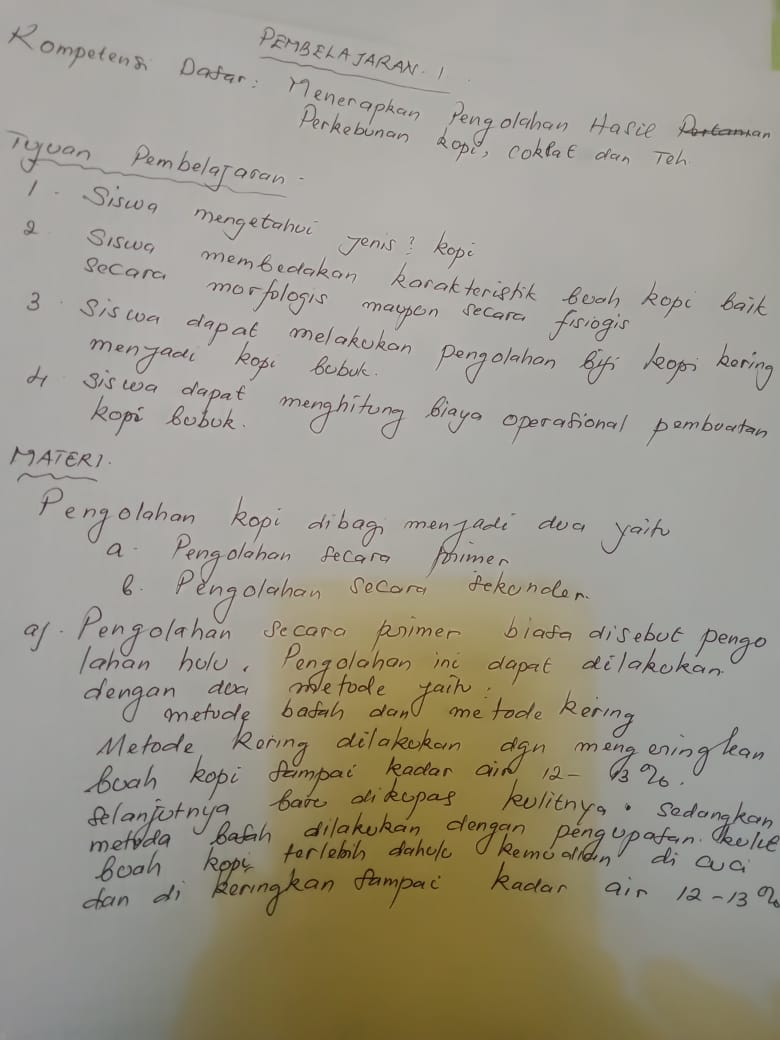 PEMBELAJARAN. 1
Kompetensi Dasar: Menerapkan Pengolahan Hasil Pertanian
Perkebunan kopi, coklat dan Teh
Tujuan Pembelajaran -
1. Siswa mengetahui jenis2 kopi
2 Siswa membedakan karakteristik buah kopi baik
secara morfologis maupun secara fisiogis
3. Siswa dapat melakukan pengolahan biji kopi kering
menjadi kopi bubuk.
4 Siswa dapat menghitung biaya operasional pembuatan
kopi bubuk.
MATERI.
Pengolahan kopi dibagi menjadi dua yaitu
a. Pengolahan secara primer
b. Pengolahan secara sekunder.
a). Pengolahan secara primer biasa disebut pengo
lahan hulu. Pengolahan ini dapat dilakukan
dengan dua metode yaitu:
metode basah dan metode kering
Metode kering dilakukan dgn mengeringkan
buah kopi sampai kadar air 12- 13 %.
selanjutnya baru dikupas kulitnya. Sedangkan
metoda basah dilakukan dengan pengupasan kulit
buah kopi terlebih dahulu kemudian di cuci
dan di keringkan sampai kadar air 12-13 %